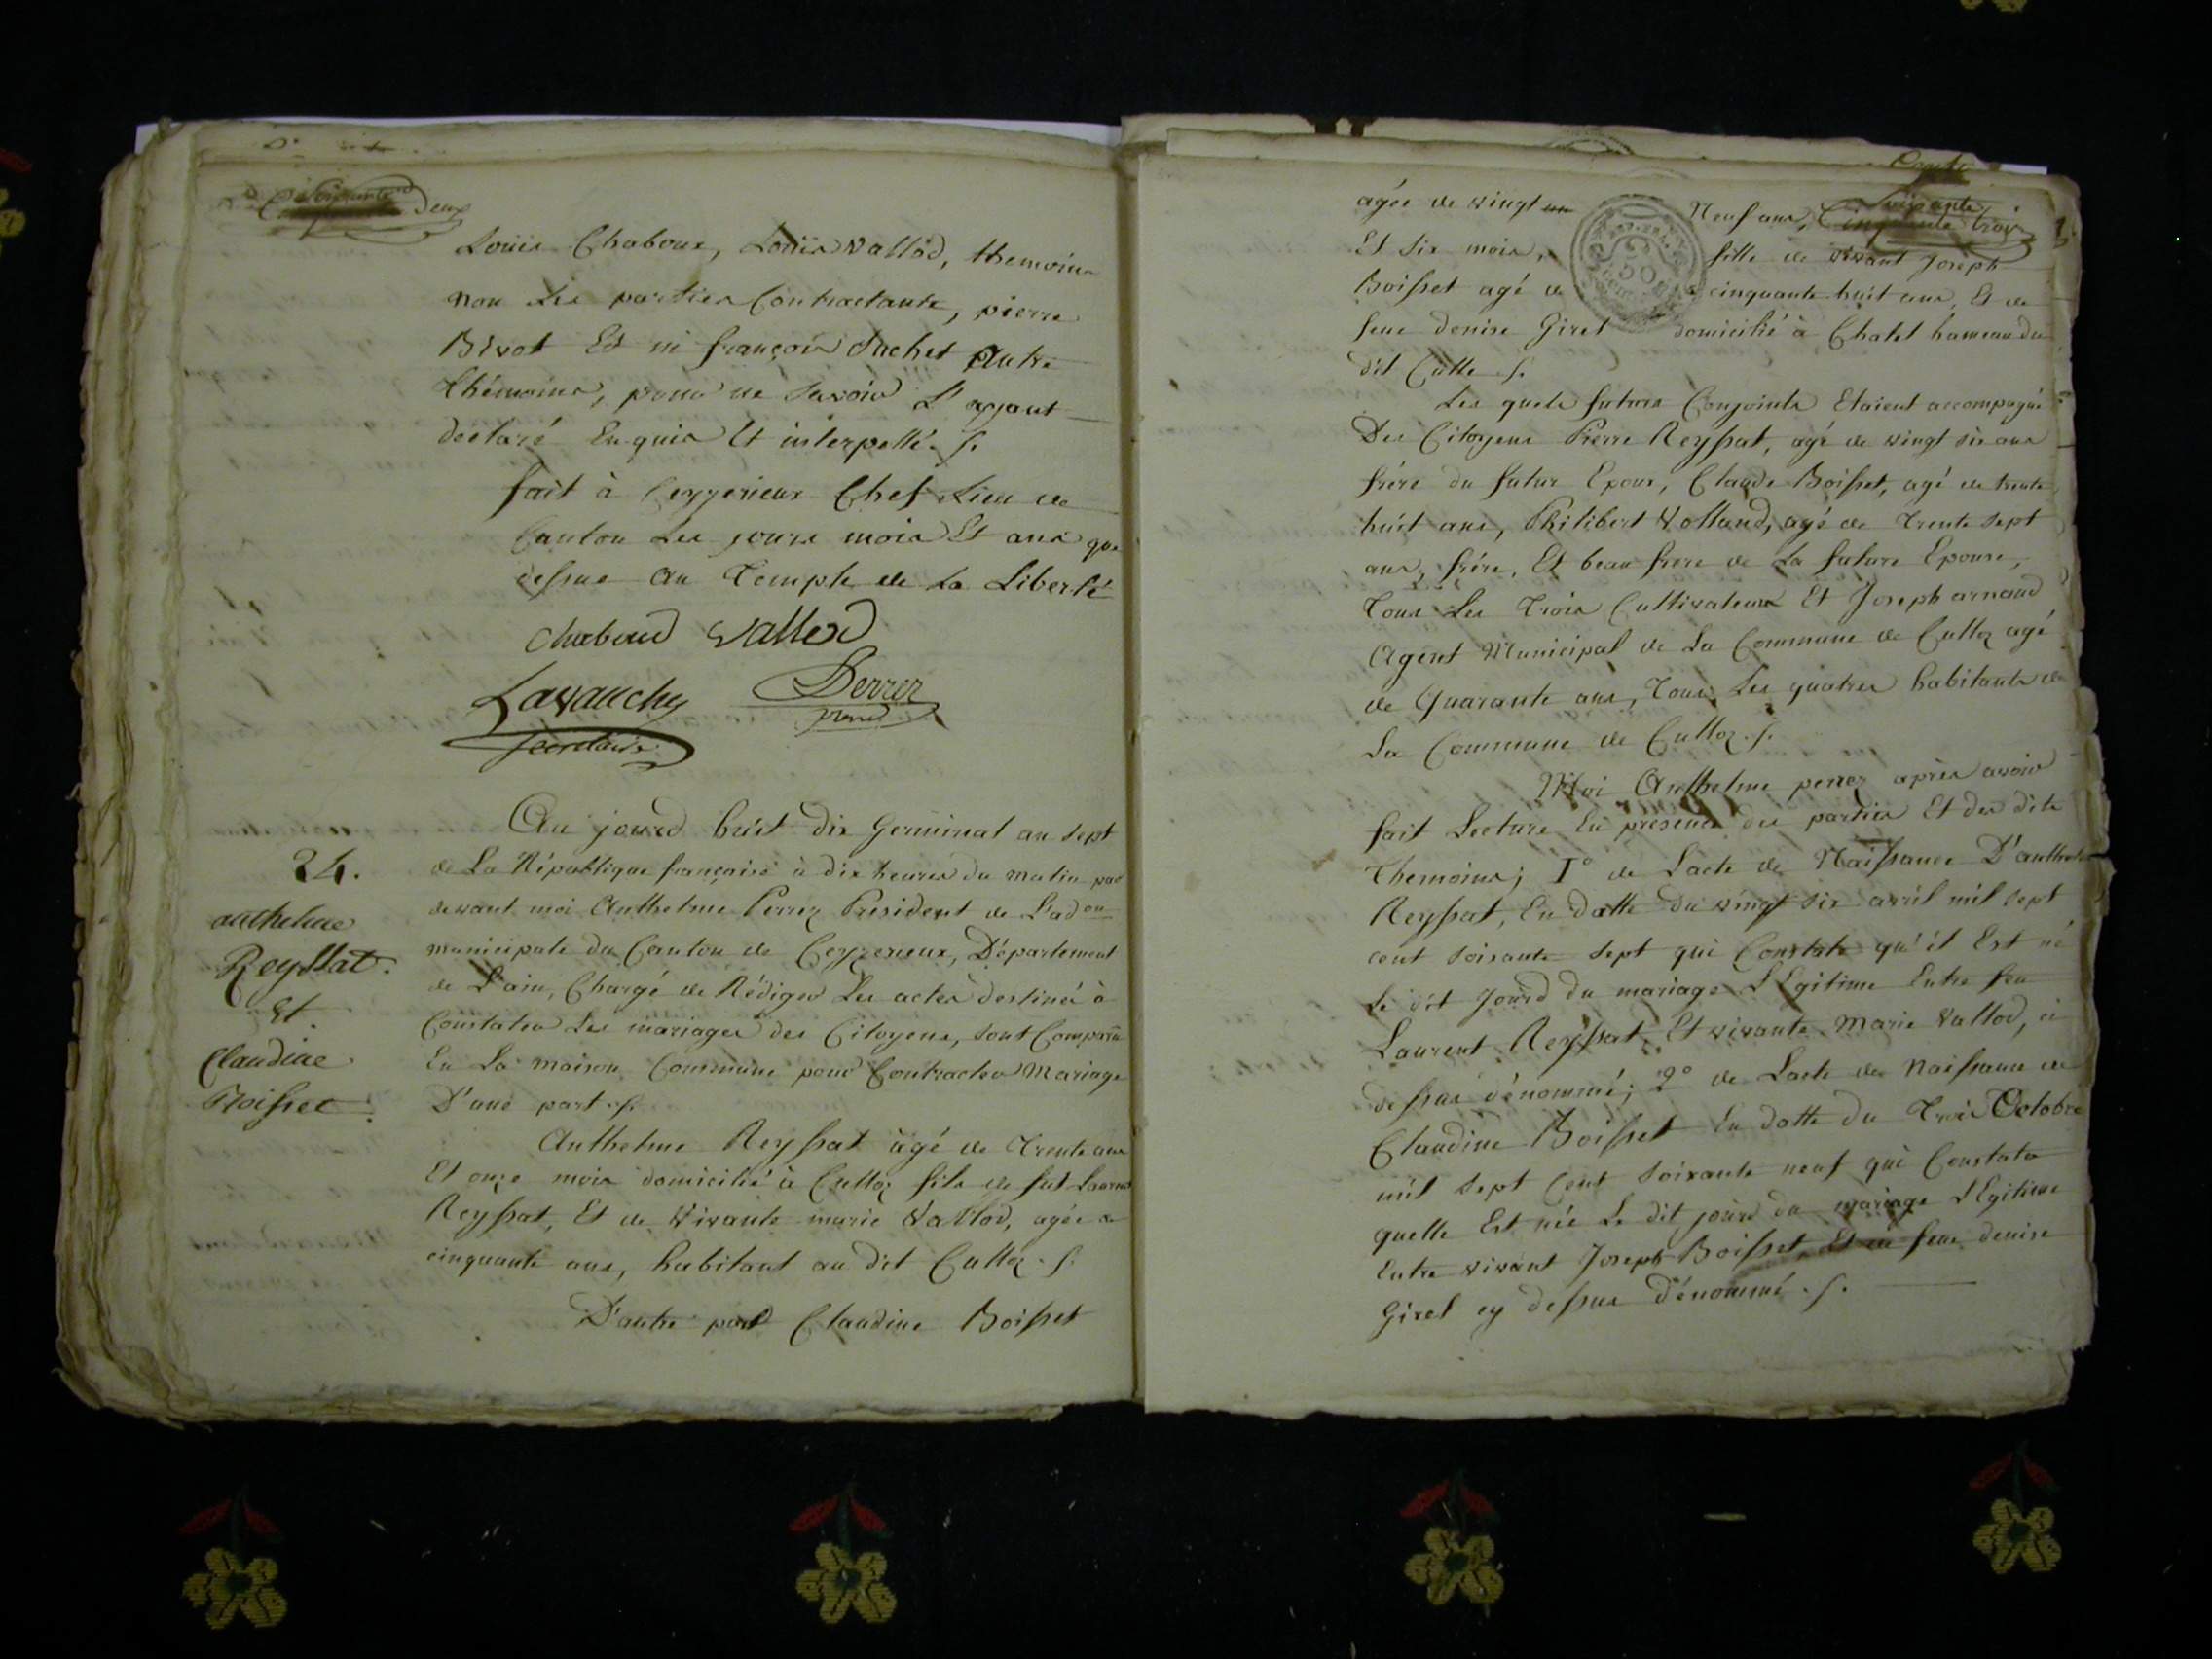 Soixante Deux
Louis Chaboux, Louis Vallod, themoins
non Les parties Contractante, pierre
Bivot Et ni françois Suchet Autre
thémoins, pour ne Savoir L'ayant
declaré Enquis Et interpellé ./.
fait à Ceyzerieux Chef Lieu de
Canton Les jours mois Et ans que
dessus au Temple de La Liberté
Chaboud Vallod
Lavauchy Perrez
secretaire presid
24.
anthelme
Reyssat
Et
Claudine
Boisset
Au jourd huit dix Germinal an sept
de La République française à dix heures du matin par
devant moi Anthelme Perrez Président de L'adon
municipale du Canton de Ceyzerieux, Département
de L'ain, Chargé de Rédiger Les actes destinés à
Constater Les mariages des Citoyens, sont Comparu
En La maison Commune pour Contracter Mariage
D'une part ./.
Anthelme Reyssat âgé de Trente ans
Et onze mois domicilié à Culloz fils de fut Laurent
Reyssat, Et de Vivante marie Vallod, agée de
cinquante ans, habitant au dit Culloz ./.
D'autre part Claudine Boisset
Soixante
Cinquante trois
agée de vingt un Neuf ans,
Et Six mois, fille de vivant Joseph
Boisset agé de cinquante huit ans, Et de
feue denise Girel domicilié à Chatel hameau du
dit Culle ./.
Les quels futurs Conjoints Etaient accompagné
Des Citoyens Pierre Reyssat, agé de vingt six ans
frére du futur Epoux, Claude Boisset, agé de trente
huit ans, Philibert Volland, agé de Trente sept
ans, frére, Et beau frere de La future Epouse,
Tous Les Trois Cultivateurs Et Joseph arnaud
Agent Municipal de La Commune de Culloz agé
de Quarante ans, Tous Les quatres habitants de
La Commune de Culloz ./.
Moi Anthelme perrez après avoir
fait Lecture En presence des parties Et des dits
Themoins; 1º de L'acte de Naissance D'anthelme
Reyssat, En datte du vingt six avril mil sept
cent soixante sept qui Constate qu'il Est né
Le dit Jourd du mariage LEgitime Entre feu
Laurent Reyssat, Et vivante Marie Vallod, ci
dessus dénommé; 2º de L'acte de Naissance de
Claudine Boisset En datte du Trois Octobre
mil sept Cent soixante neuf qui Constate
quelle Est née Le dit jourd du mariage LEgitime
Entre vivant Joseph Boisset, Et de feue denise
Girel cy dessus dénommé ./.